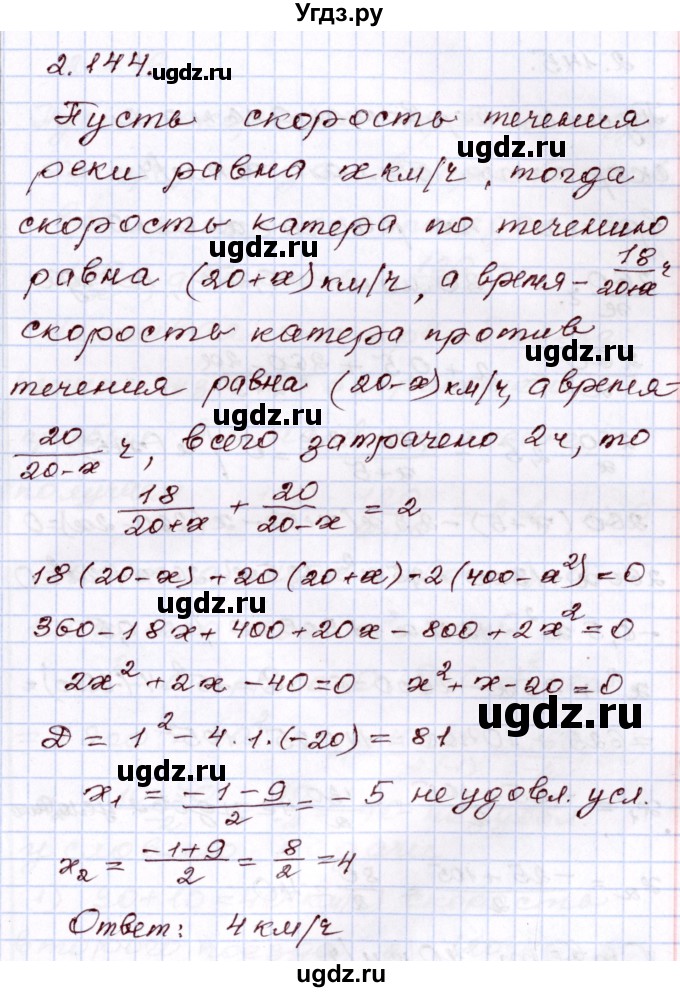 Угдз.ру
2.144.
ugdz.ru
Пусть скорость течения
ugdz.ru
реки равна x км/ч, тогда
скорость катера по течению
ugdz.ru
равна (20+x) км/ч, а время - 18/(20+x) ч
ugdz.ru
скорость катера против
течения равна (20-x) км/ч, а время -
ugdz.ru
20/(20-x) ч, всего затрачено 2ч, то
18/(20+x) + 20/(20-x) = 2
ugdz.ru
18(20-x)+20(20+x)-2(400-x²)=0
ugdz.ru
360-18x+400+20x-800+2x²=0
2x²+2x-40=0 x²+x-20=0
ugdz.ru
D = 1²-4·1·(-20) = 81
ugdz.ru
x₁ = (-1-9)/2 = -5 не удовл. усл.
x₂ = (-1+9)/2 = 8/2 = 4
ugdz.ru
Ответ: 4 км/ч
ugdz.ru
ugdz.ru